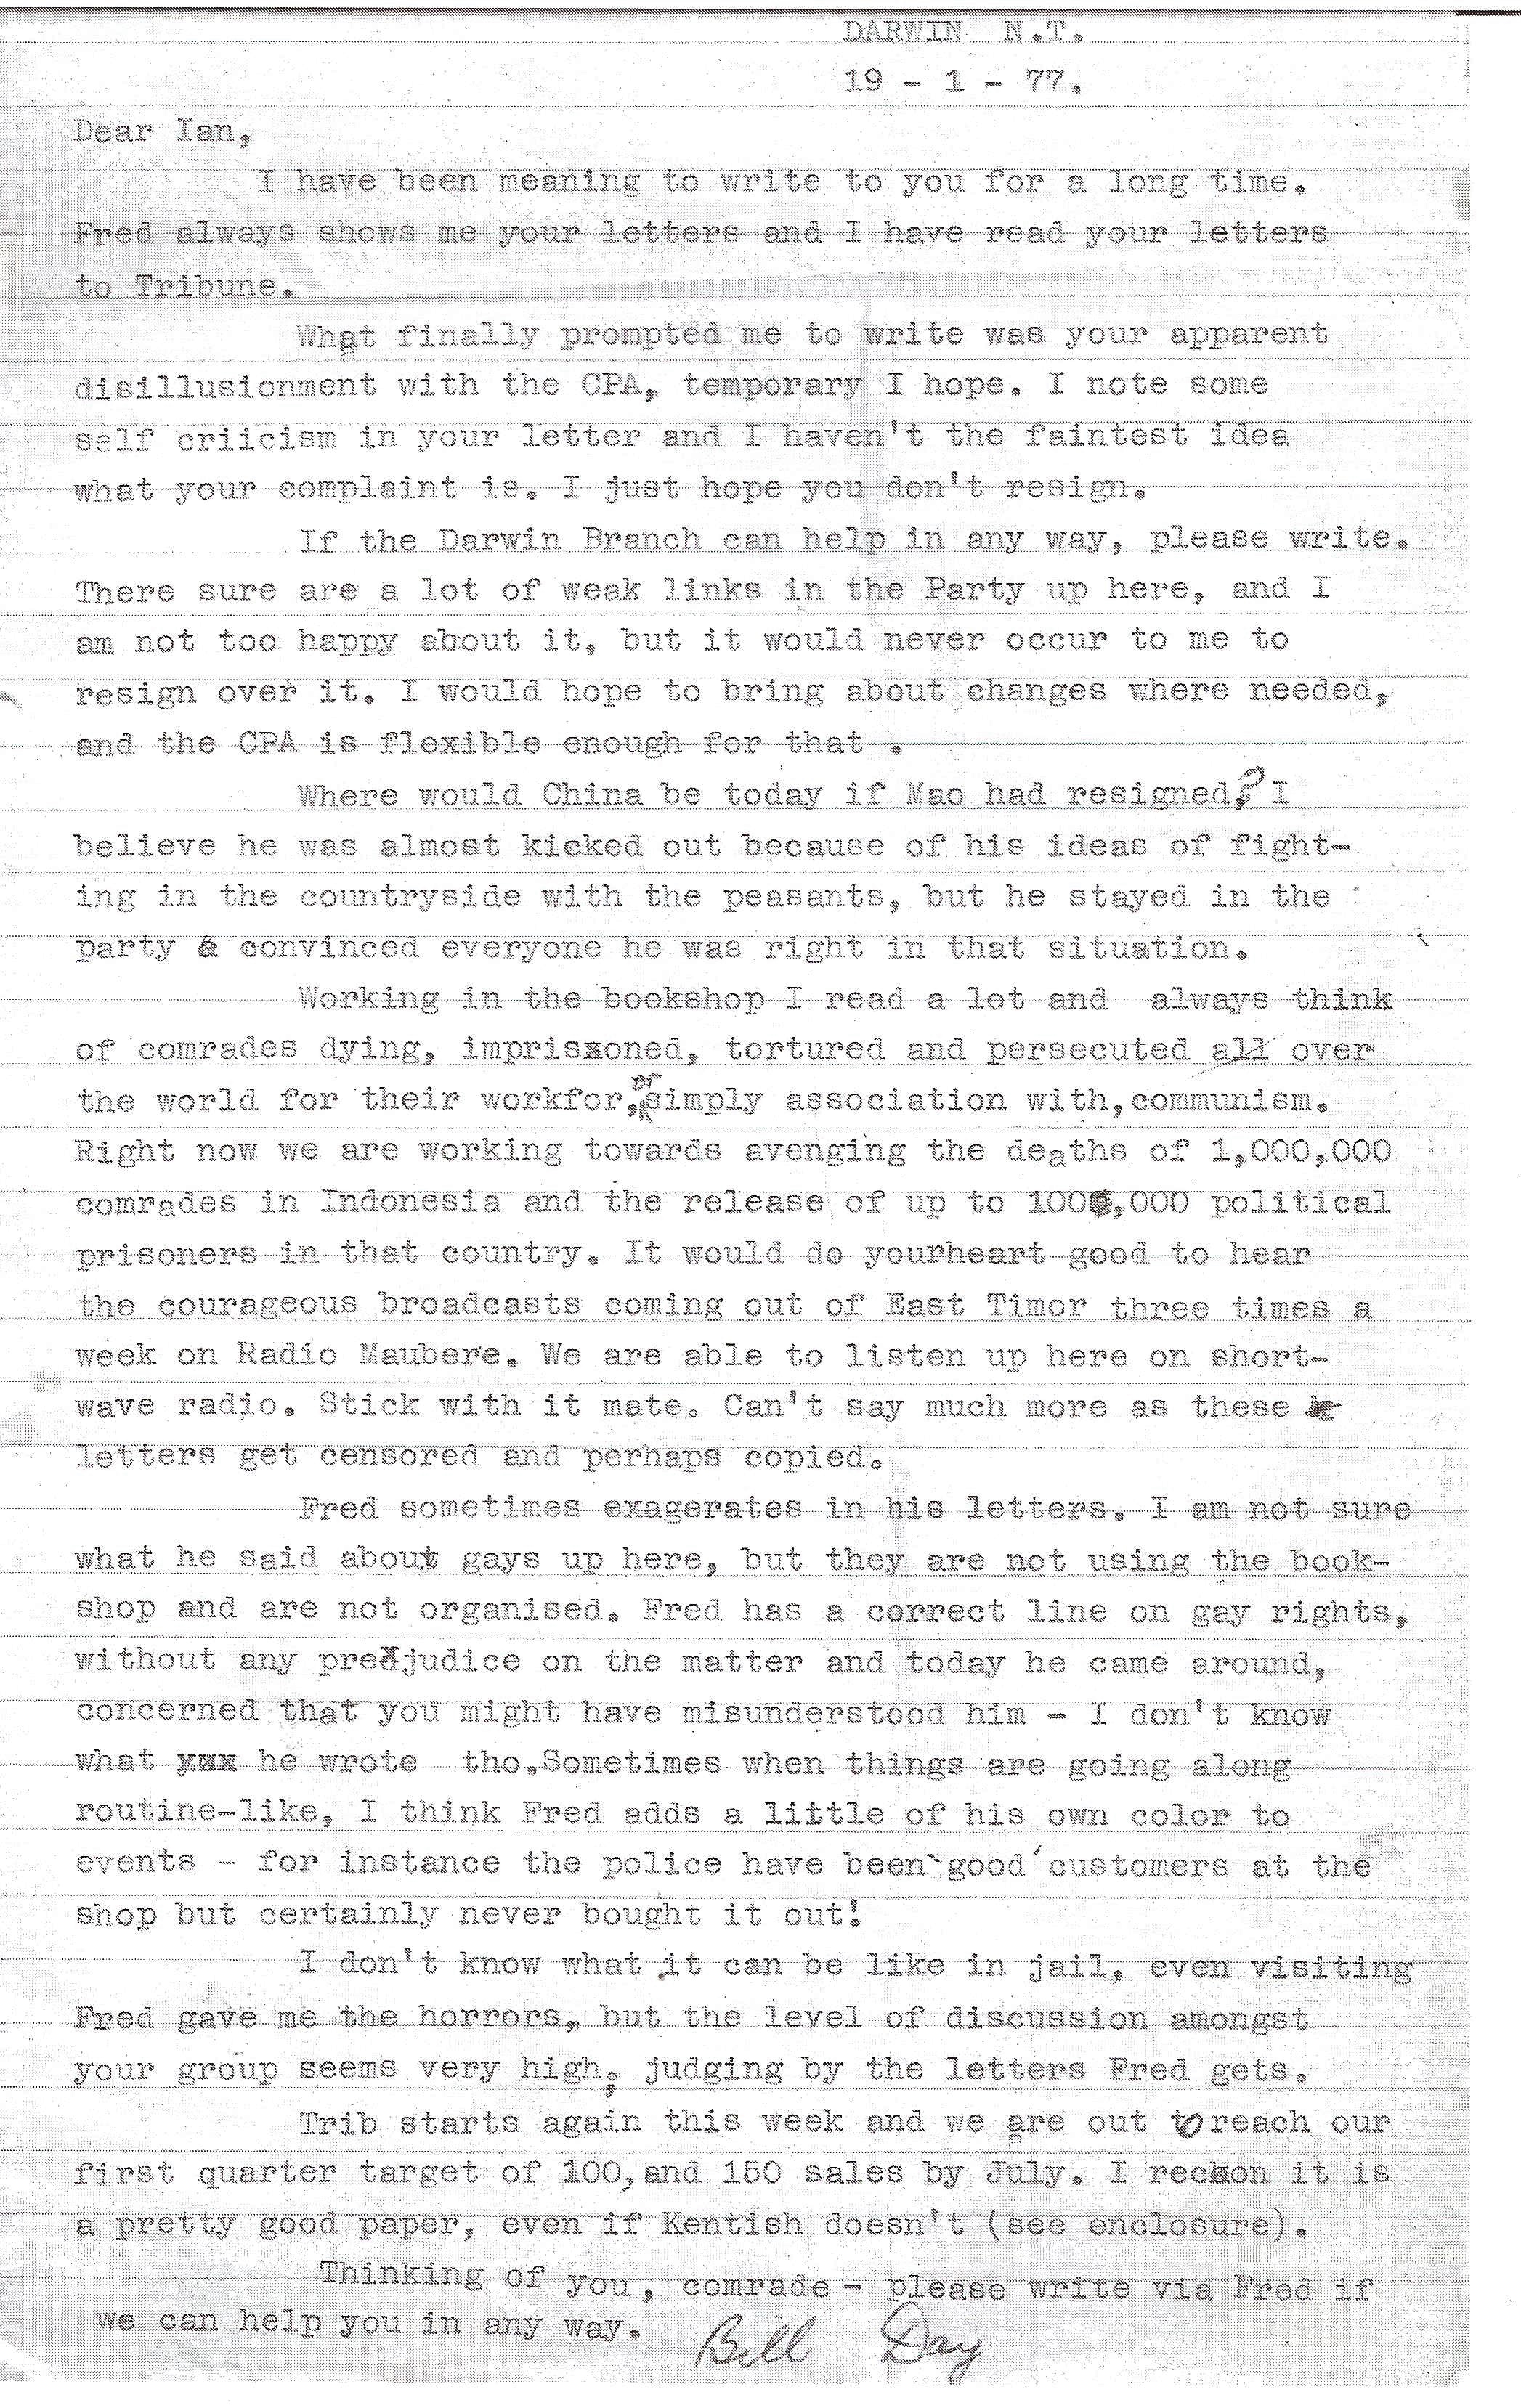 DARWIN N.T.
19 - 1 - 77.
Dear Ian,
I have been meaning to write to you for a long time.
Fred always shows me your letters and I have read your letters
to Tribune.
What finally prompted me to write was your apparent
disillusionment with the CPA, temporary I hope. I note some
self criicism in your letter and I haven't the faintest idea
what your complaint is. I just hope you don't resign.
If the Darwin Branch can help in any way, please write.
There sure are a lot of weak links in the Party up here, and I
am not too happy about it, but it would never occur to me to
resign over it. I would hope to bring about changes where needed,
and the CPA is flexible enough for that .
Where would China be today if Mao had resigned? I
believe he was almost kicked out because of his ideas of fight-
ing in the countryside with the peasants, but he stayed in the
party & convinced everyone he was right in that situation.
Working in the bookshop I read a lot and always think
of comrades dying, imprisxoned, tortured and persecuted all over
the world for their workfor, or simply association with, communism.
Right now we are working towards avenging the deaths of 1,000,000
comrades in Indonesia and the release of up to 100,000 political
prisoners in that country. It would do yourheart good to hear
the courageous broadcasts coming out of East Timor three times a
week on Radio Maubere. We are able to listen up here on short-
wave radio. Stick with it mate. Can't say much more as these
letters get censored and perhaps copied.
Fred sometimes exagerates in his letters. I am not sure
what he said about gays up here, but they are not using the book-
shop and are not organised. Fred has a correct line on gay rights,
without any prexjudice on the matter and today he came around,
concerned that you might have misunderstood him - I don't know
what yxx he wrote tho.Sometimes when things are going along
routine-like, I think Fred adds a little of his own color to
events - for instance the police have been 'good' customers at the
shop but certainly never bought it out!
I don't know what it can be like in jail, even visiting
Fred gave me the horrors, but the level of discussion amongst
your group seems very high, judging by the letters Fred gets.
Trib starts again this week and we are out to reach our
first quarter target of 100, and 150 sales by July. I reckon it is
a pretty good paper, even if Kentish doesn't (see enclosure).
Thinking of you, comrade - please write via Fred if
we can help you in any way. Bill Day